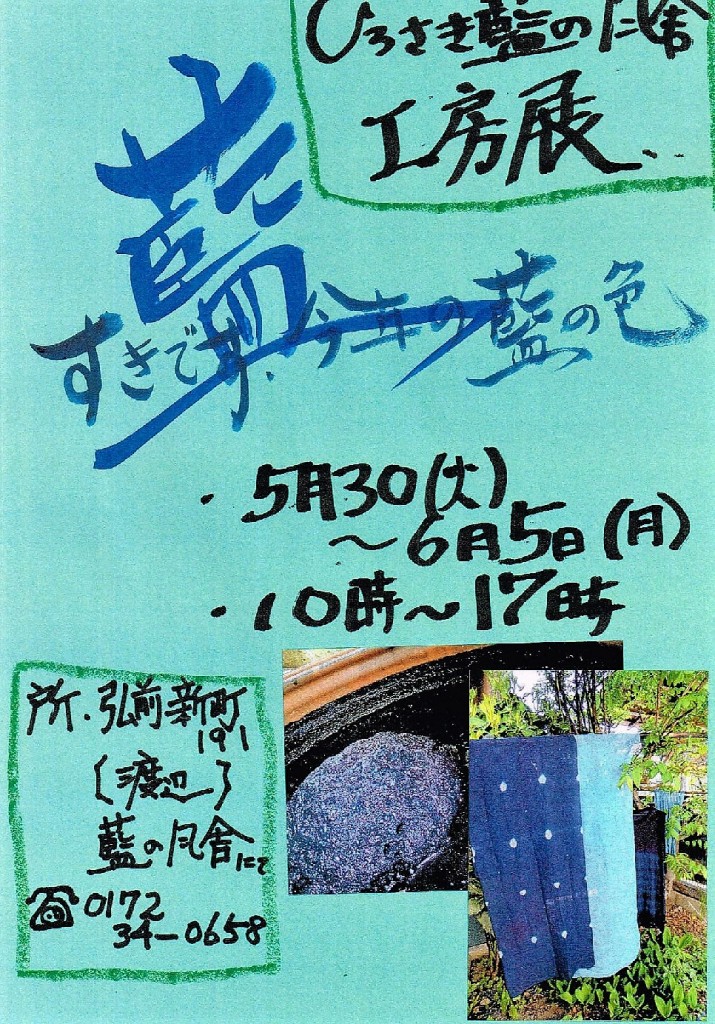 ひろさき藍の風舎
工房展
藍
すきです、今年の藍の色
・5月30(火)
～6月5日(月)
・10時～17時
所.弘前新町
191
〔渡辺〕
藍の風舎にて
☎0172
34-0658